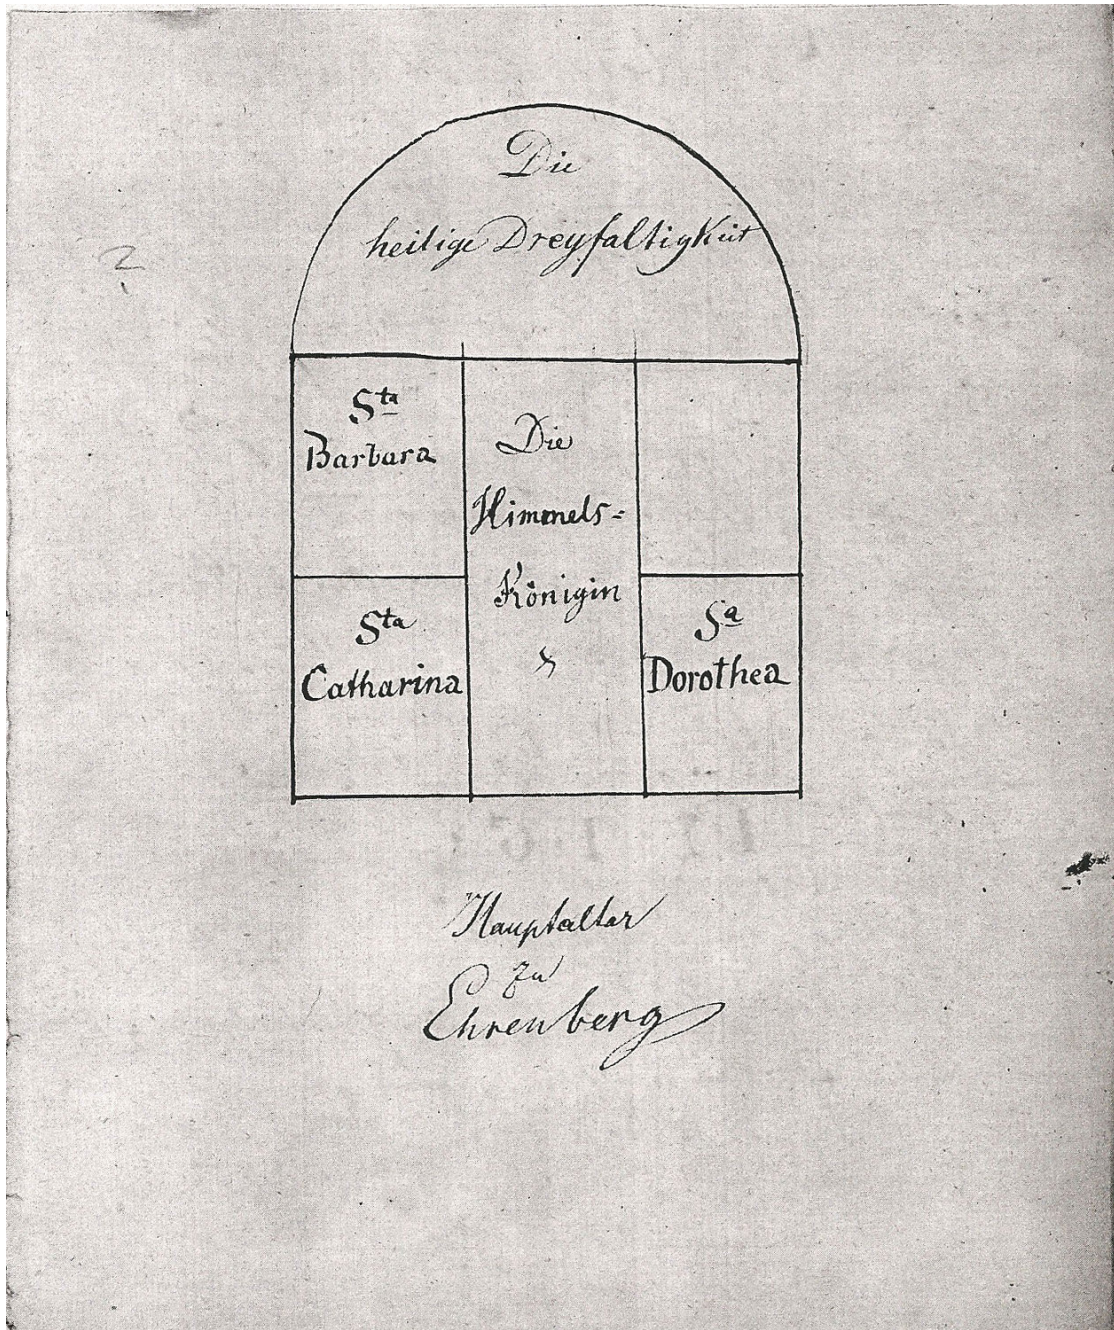 Die
heilige Dreyfaltigkeit
Sta
Barbara
Die
Himmels=
Königin
Sta
Catharina
Sa
Dorothea
Hauptaltar
zu
Ehrenberg